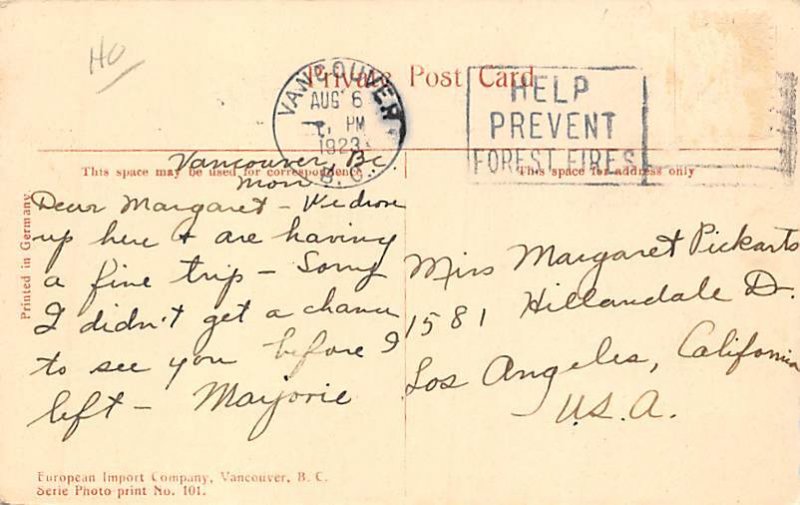 HO
Private Post Card
VANCOUVER
AUG 6
PM
1923
B. C.
HELP
PREVENT
FOREST FIRES
This space may be used for correspondence
This space for address only
Printed in Germany
Vancouver, B.C.
Mon
Dear Margaret -
up here + are having
a fine trip - Sorry
I didn't get a chance
to see you before I
left - Marjorie
Miss Margaret Pickarts
1581 Hillandale Dr.
Los Angeles, California
U.S.A.
European Import Company, Vancouver, B. C.
Serie Photo-print No. 101.